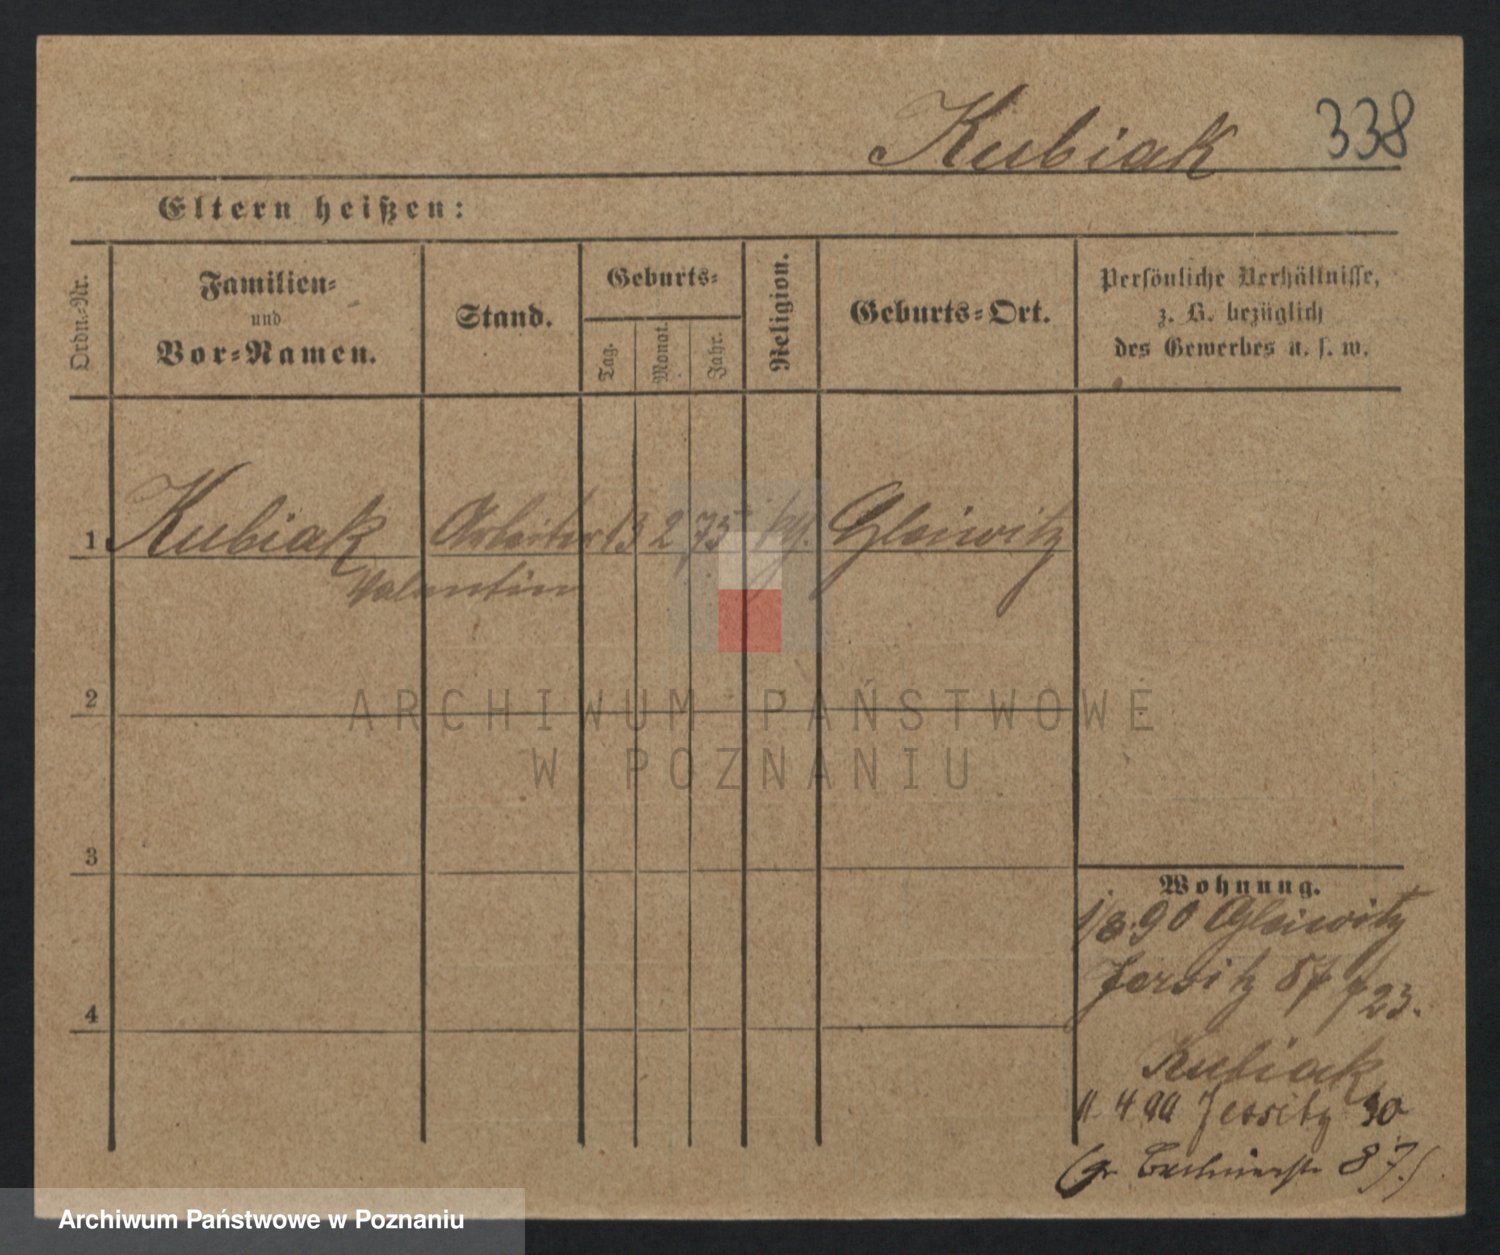 Kubiak 338
Eltern heißen:
Ordn.-Nr.
Familien-
und
Vor-Namen.
Stand.
Geburts-
Tag.
Monat.
Jahr.
Religion.
Geburts-Ort.
Persönliche Verhältnisse,
z. B. bezüglich
des Gewerbes u. s. w.
1 Kubiak Arbeiter 13 2 75 Gleiwitz
Valentin
2
ARCHIWUM PAŃSTWOWE
W POZNANIU
3
Wohnung.
1/8.90 Gleiwitz
Jersitz 87
Kubiak
Jersitz 90
87.)
4
Archiwum Państwowe w Poznaniu